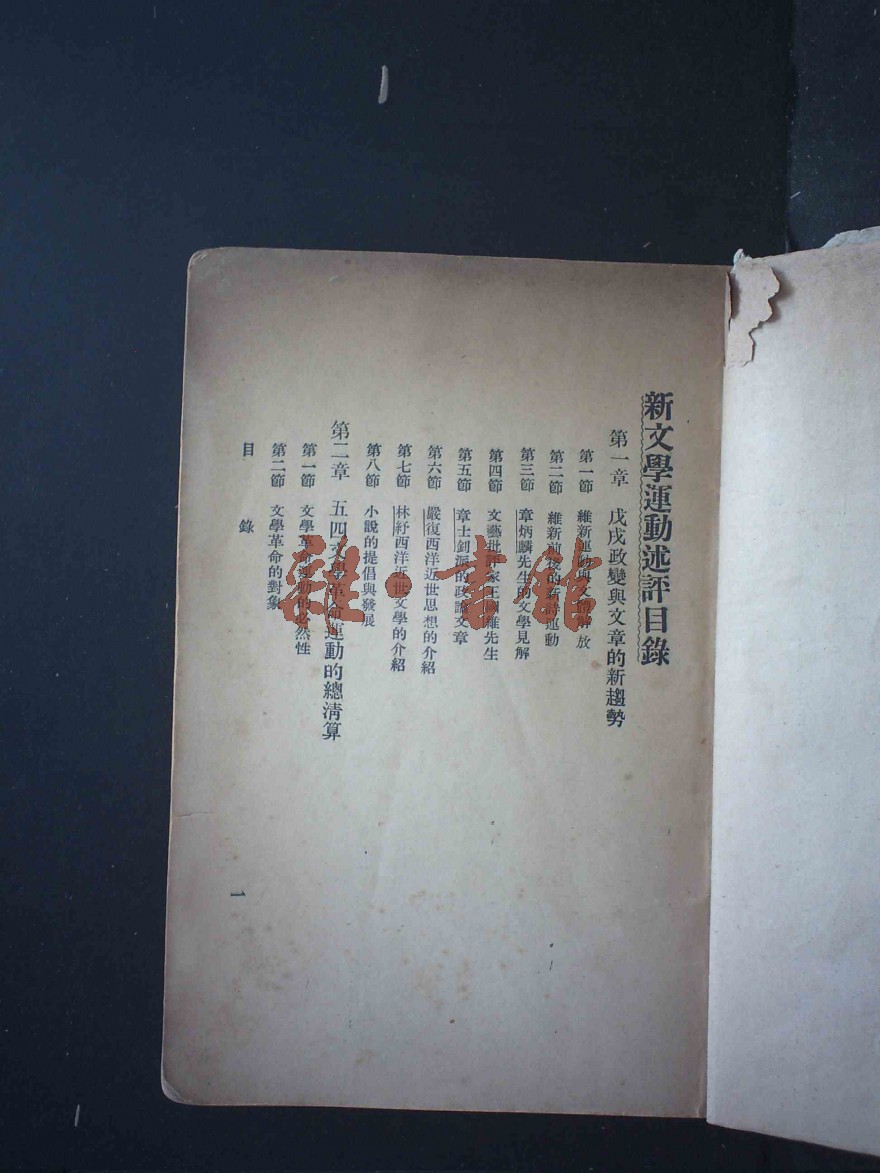 新文學運動述評目錄
第一章 戊戌政變與文章的新趨勢
第一節 維新運動與文體解放
第二節 維新前後的新詩運動
第三節 章炳麟先生的文學見解
第四節 文藝批評家王國維先生
第五節 章士釗派的政論文章
第六節 嚴復西洋近世思想的介紹
第七節 林紓西洋近世文學的介紹
第八節 小說的提倡與發展
第二章 五四文學革命運動的總清算
第一節 文學革命運動的必然性
第二節 文學革命的對象
目錄
一
雜·書館